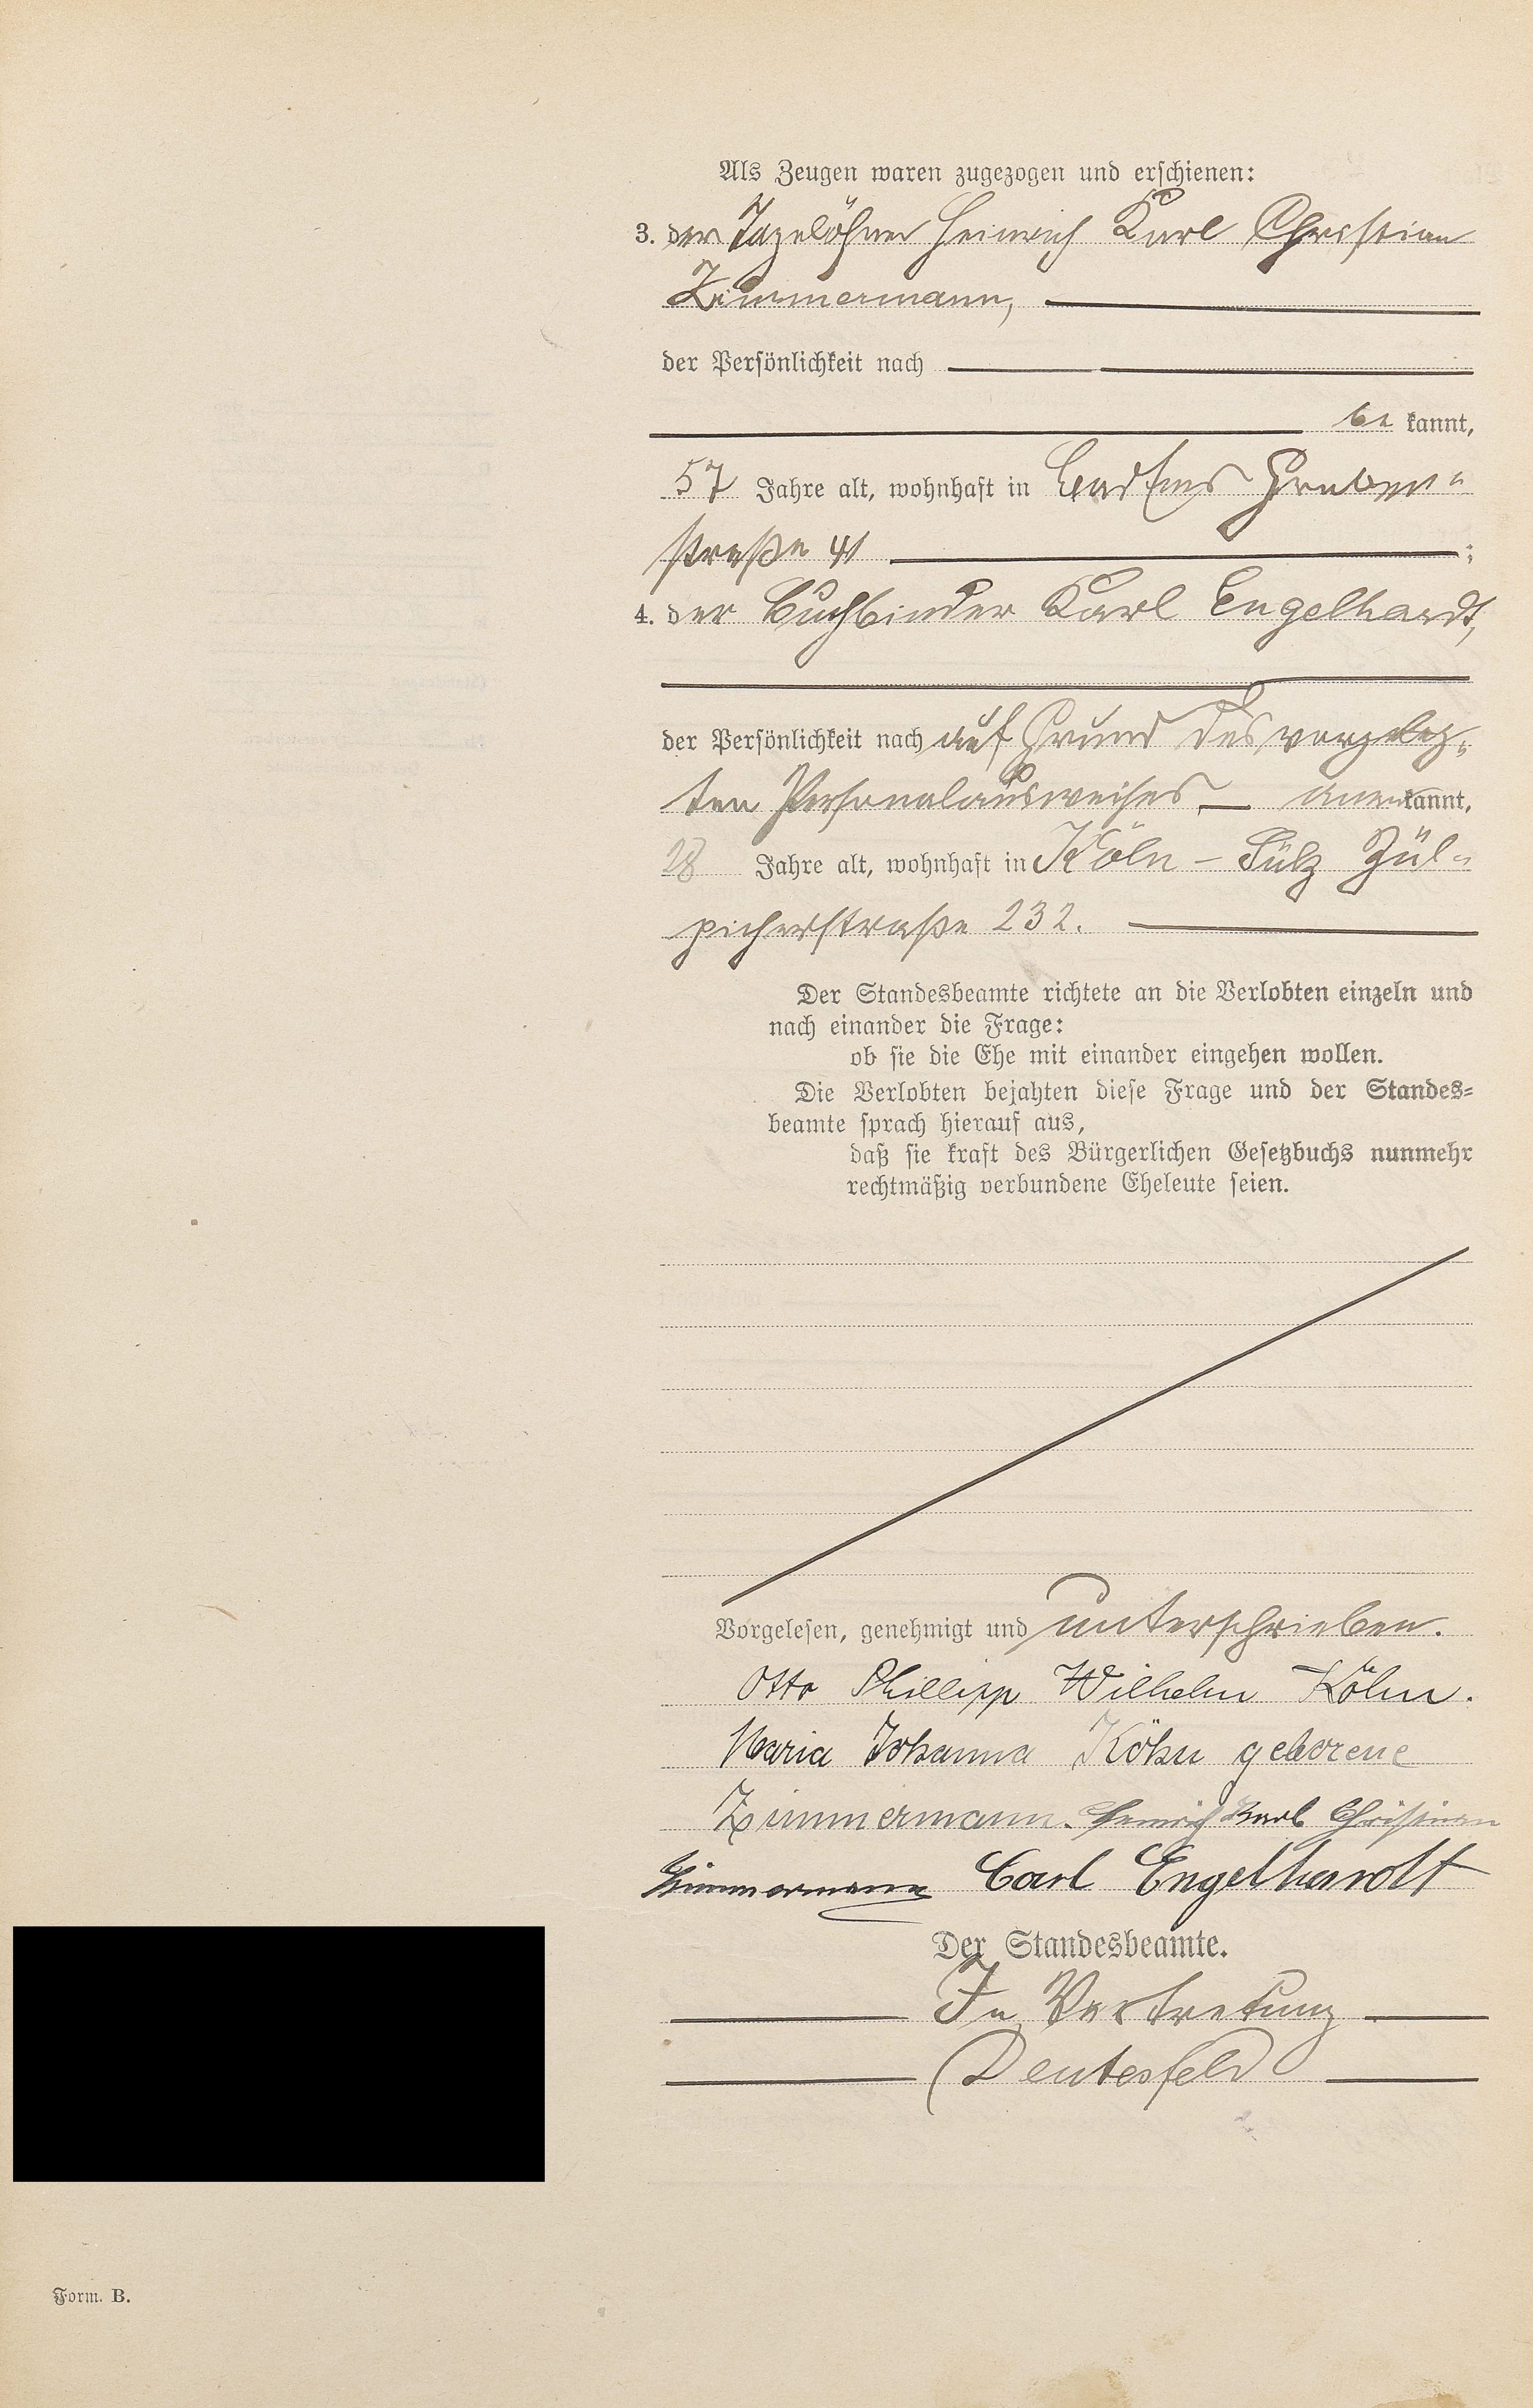 Als Zeugen waren zugezogen und erschienen:
3. der Tagelöhner Heinrich Karl Christian
Zimmermann,
der Persönlichkeit nach
be kannt,
57 Jahre alt, wohnhaft in Bad Ems Graben-
straße 41 ;
4. der Buchbinder Karl Engelhardt,
der Persönlichkeit nach auf Grund des vorgeleg-
ten Personalausweises anerkannt,
28 Jahre alt, wohnhaft in Köln - Sülz Zül-
picherstraße 232.
Der Standesbeamte richtete an die Verlobten einzeln und
nach einander die Frage:
ob sie die Ehe mit einander eingehen wollen.
Die Verlobten bejahten diese Frage und der Standes-
beamte sprach hierauf aus,
daß sie kraft des Bürgerlichen Gesetzbuchs nunmehr
rechtmäßig verbundene Eheleute seien.
Vorgelesen, genehmigt und unterschrieben.
Otto Phillipp Wilhelm Köhn.
Maria Johanna Köhn geborene
Zimmermann. Heinrich Karl Christian
Zimmermann Carl Engelhardt
Der Standesbeamte.
In Vertretung
Deutesfeld
Form. B.